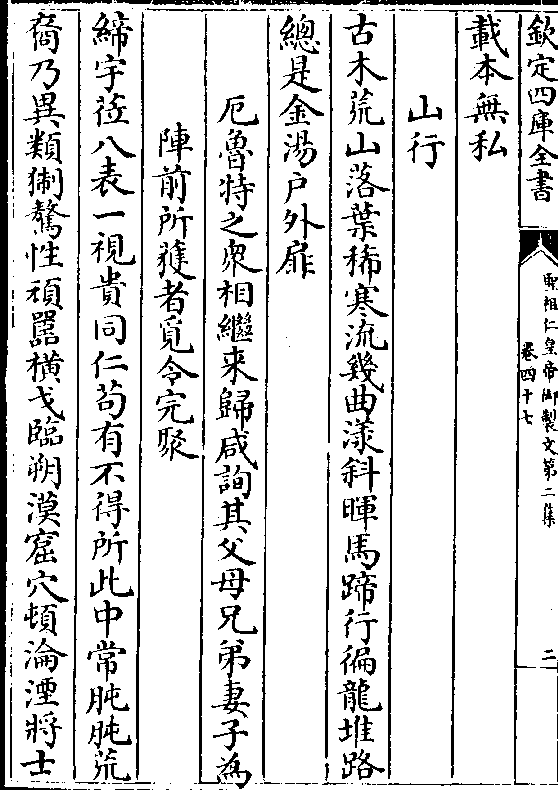 欽定四庫全書
聖祖仁皇帝御製文第二集
卷四十七
二
載本無私
山行
古木荒山落葉稀寒流幾曲漾斜暉馬蹄行徧龍堆路
總是金湯户外扉
厄魯特之衆相繼来歸咸詢其父母兄弟妻子為
陣前所獲者覓令完聚
締宇莅八表一視貴同仁苟有不得所此中常肫肫荒
裔乃異類猘驁性頑嚚横戈臨朔漠窟穴頓淪湮將士